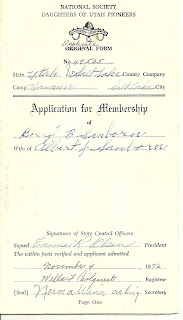 NATIONAL SOCIETY
DAUGHTERS OF UTAH PIONEERS
Duplicate
ORIGINAL FORM
No. 49505
State Utah Salt Lake County Company
Camp Salt Lake City
Application for Membership
of
B. Sanborn
Wife of Albert J. Sanborn
Signatures of State Central Officers
Signed President
The within facts verified and applicant admitted
November 4 1976
Registrar
(Seal) Norma Wing acting Secretary
Page One